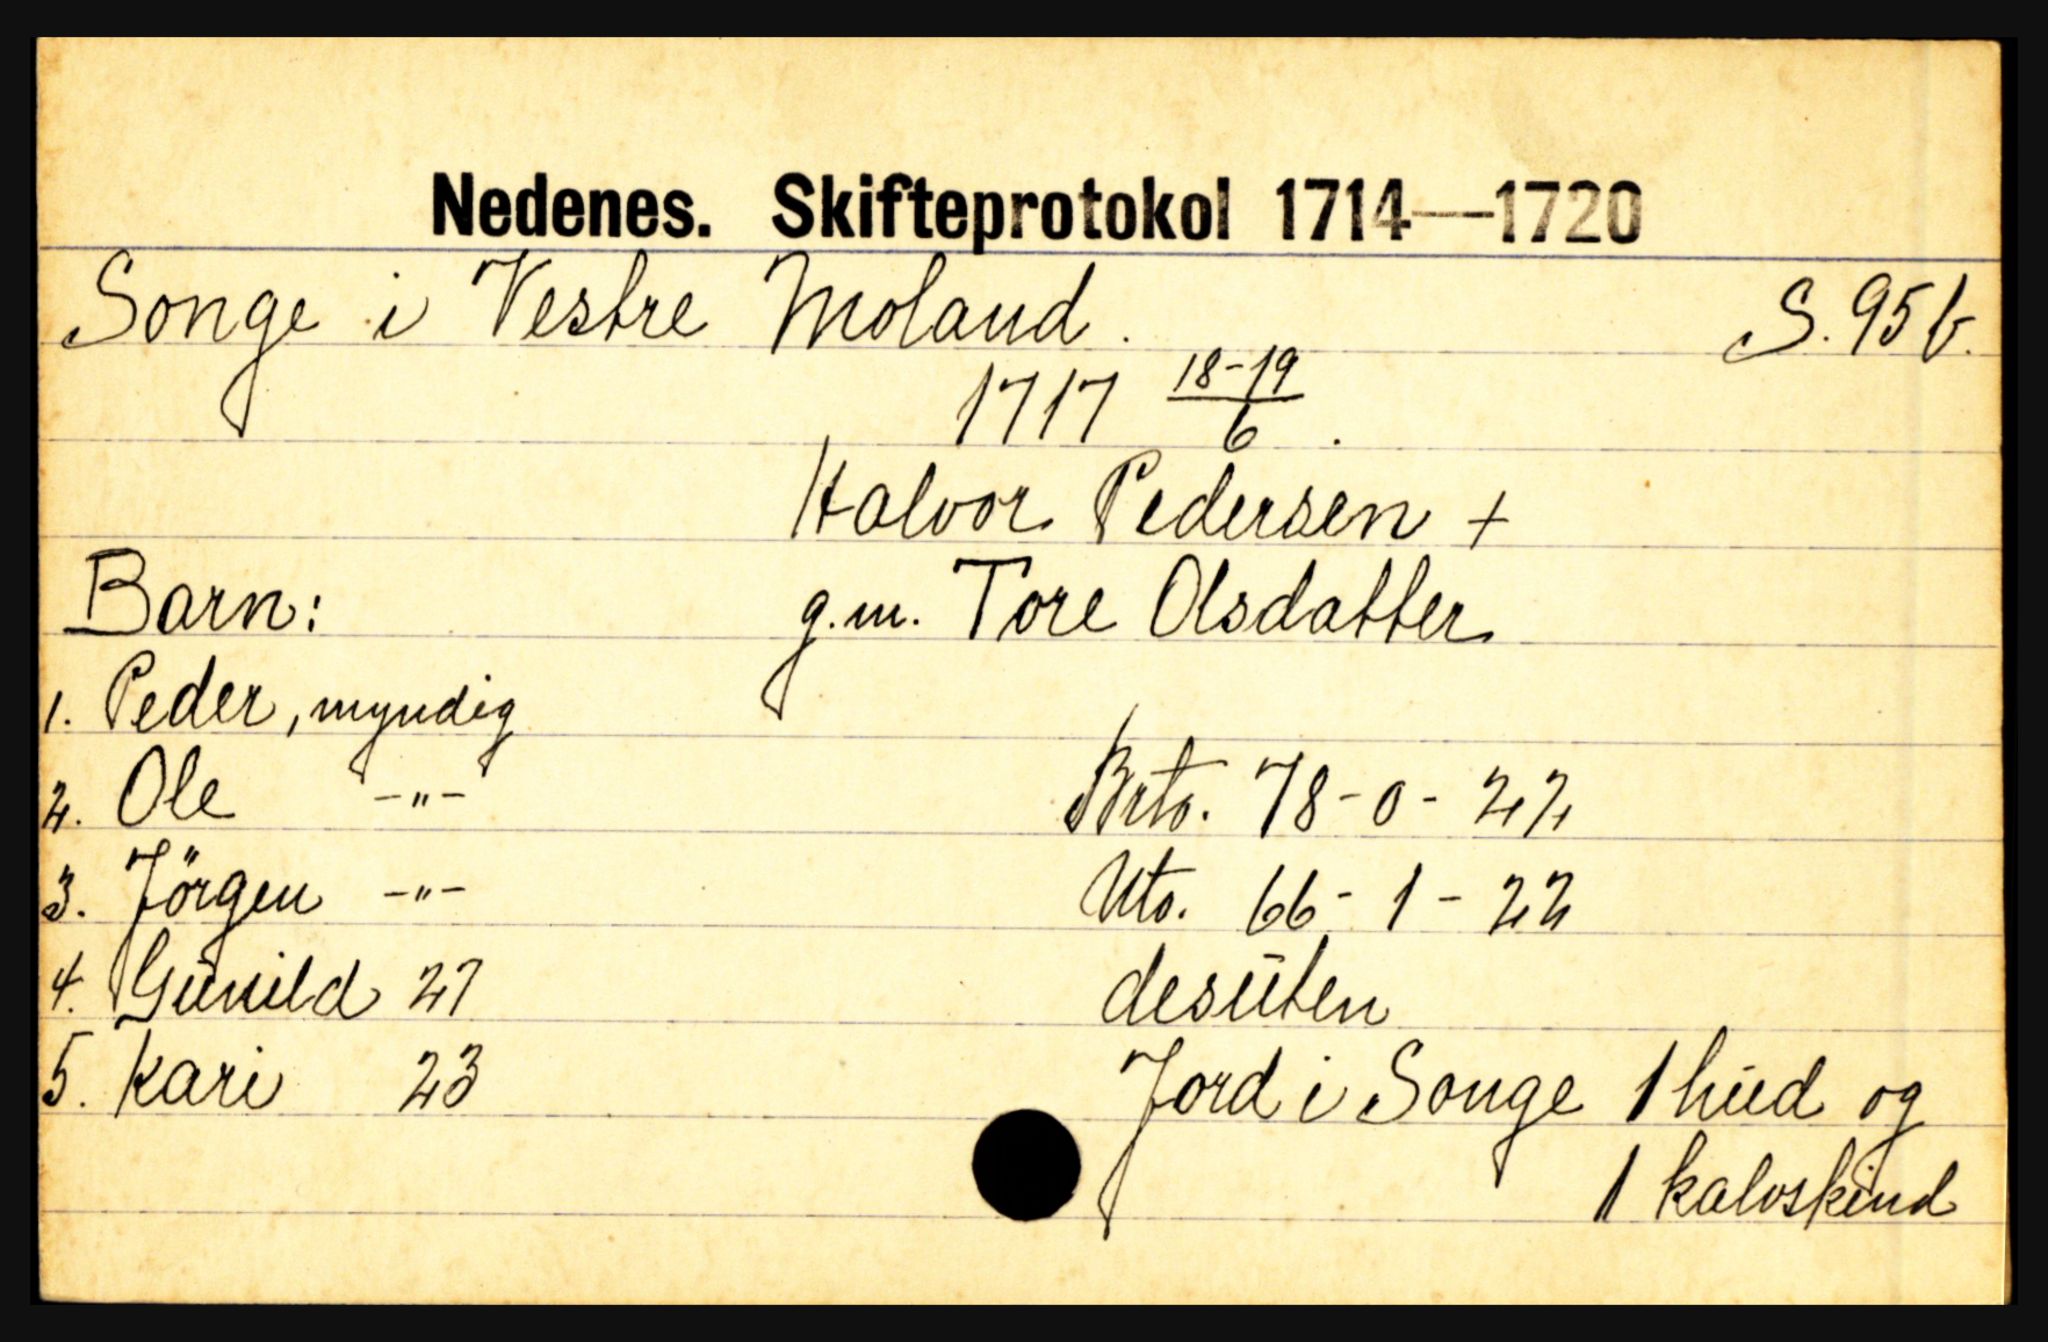 Nedenes. Skifteprotokol 1714—1720
Songe i Vestre Moland. S. 95 b.
1717 18-19/6.
Halvor Pedersen +
Barn: g.m. Tore Olsdatter
1. Peder, myndig
2. Ole -"- Brto. 78-0-22
3. Jörgen -"- Nto. 66-1-22
4. Gunild 27 desuten
5. Kari 23 Jord i Songe 1 hud og
1 kalvskind